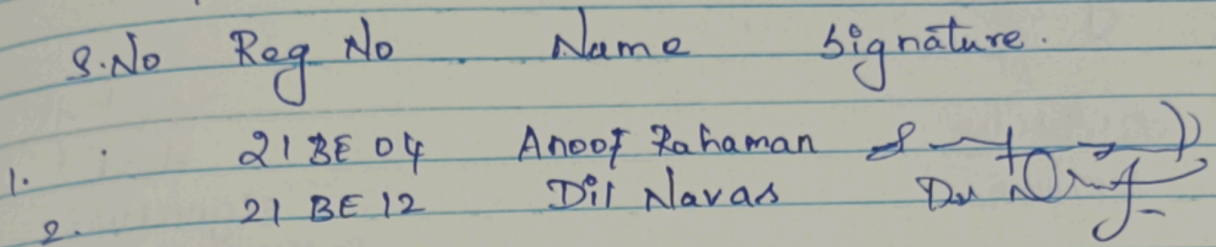 S.No Reg No Name Signature.
1. 21 BE 04 Anoof Rahaman
2. 21 BE 12 Dil Navas